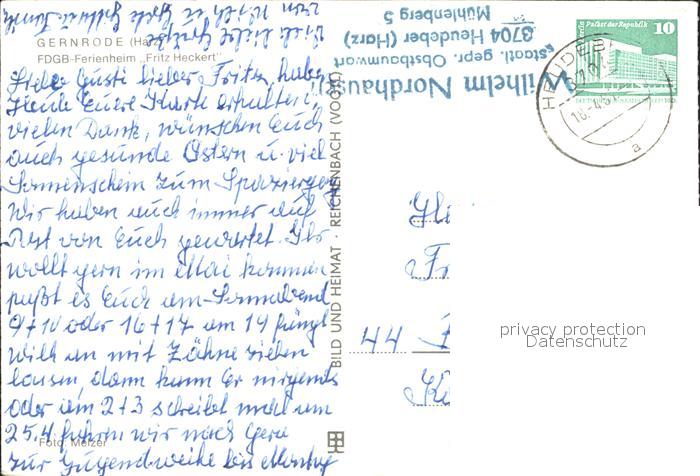 GERNRODE (Ha
FDGB-Ferienheim „Fritz Heckert"
Liebe Gusti lieber Fritz, haben
Heute Eure Karte erhalten,
vielen Dank, wünschen Euch
auch gesunde Ostern u. viel
Sonnenschein zum
Wir haben auch immer auf
Post von Euch gewartet. Ihr
wollt gern im Mai kommen
paßt es Euch am Sonnabend
9+10 oder 16+17 am 19
will an mit Zähne ziehen
lassen, dann kann Er nirgends
oder am 2+3 schreibt mal am
25.4. fahren wir nach Gera
zur Jugendweihe bis Montag
Foto: Metzer
BILD UND HEIMAT · REICHENBACH (VOGTL)
Wilhelm Nordhau
staatl. gepr. Obstbaumwart
3704 Heudeber (Harz)
Mühlenberg 5
Berlin Palast der Republik 10
HEUDEBE
a
44
privacy protection
Datenschutz